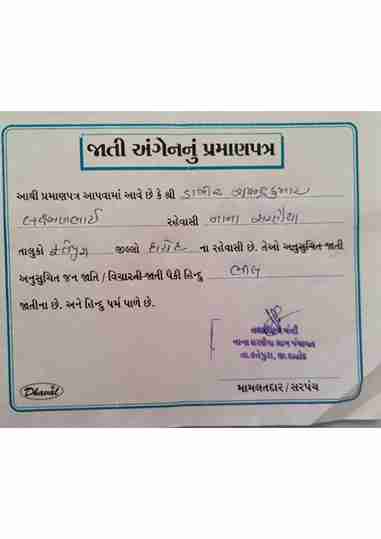 જાતી અંગેનનું પ્રમાણપત્ર
આથી પ્રમાણપત્ર આપવામાં આવે છે કે શ્રી ડામોર
રહેવાસી નાના
તાલુકો ફતેપુરા જીલ્લો દાહોદ ના રહેવાસી છે. તેઓ અનુસુચિત જાતી
અનુસુચિત જન જાતિ / વિચારતી-જાતી પૈકી હિન્દુ ભીલ
જાતીના છે. અને હિન્દુ ધર્મ પાળે છે.
તલાટી કમ મંત્રી
નાના સરણૈયા ગ્રામ પંચાયત
તા.ફતેપુરા, જી.દાહોદ
Dhaval
મામલતદાર / સરપંચ